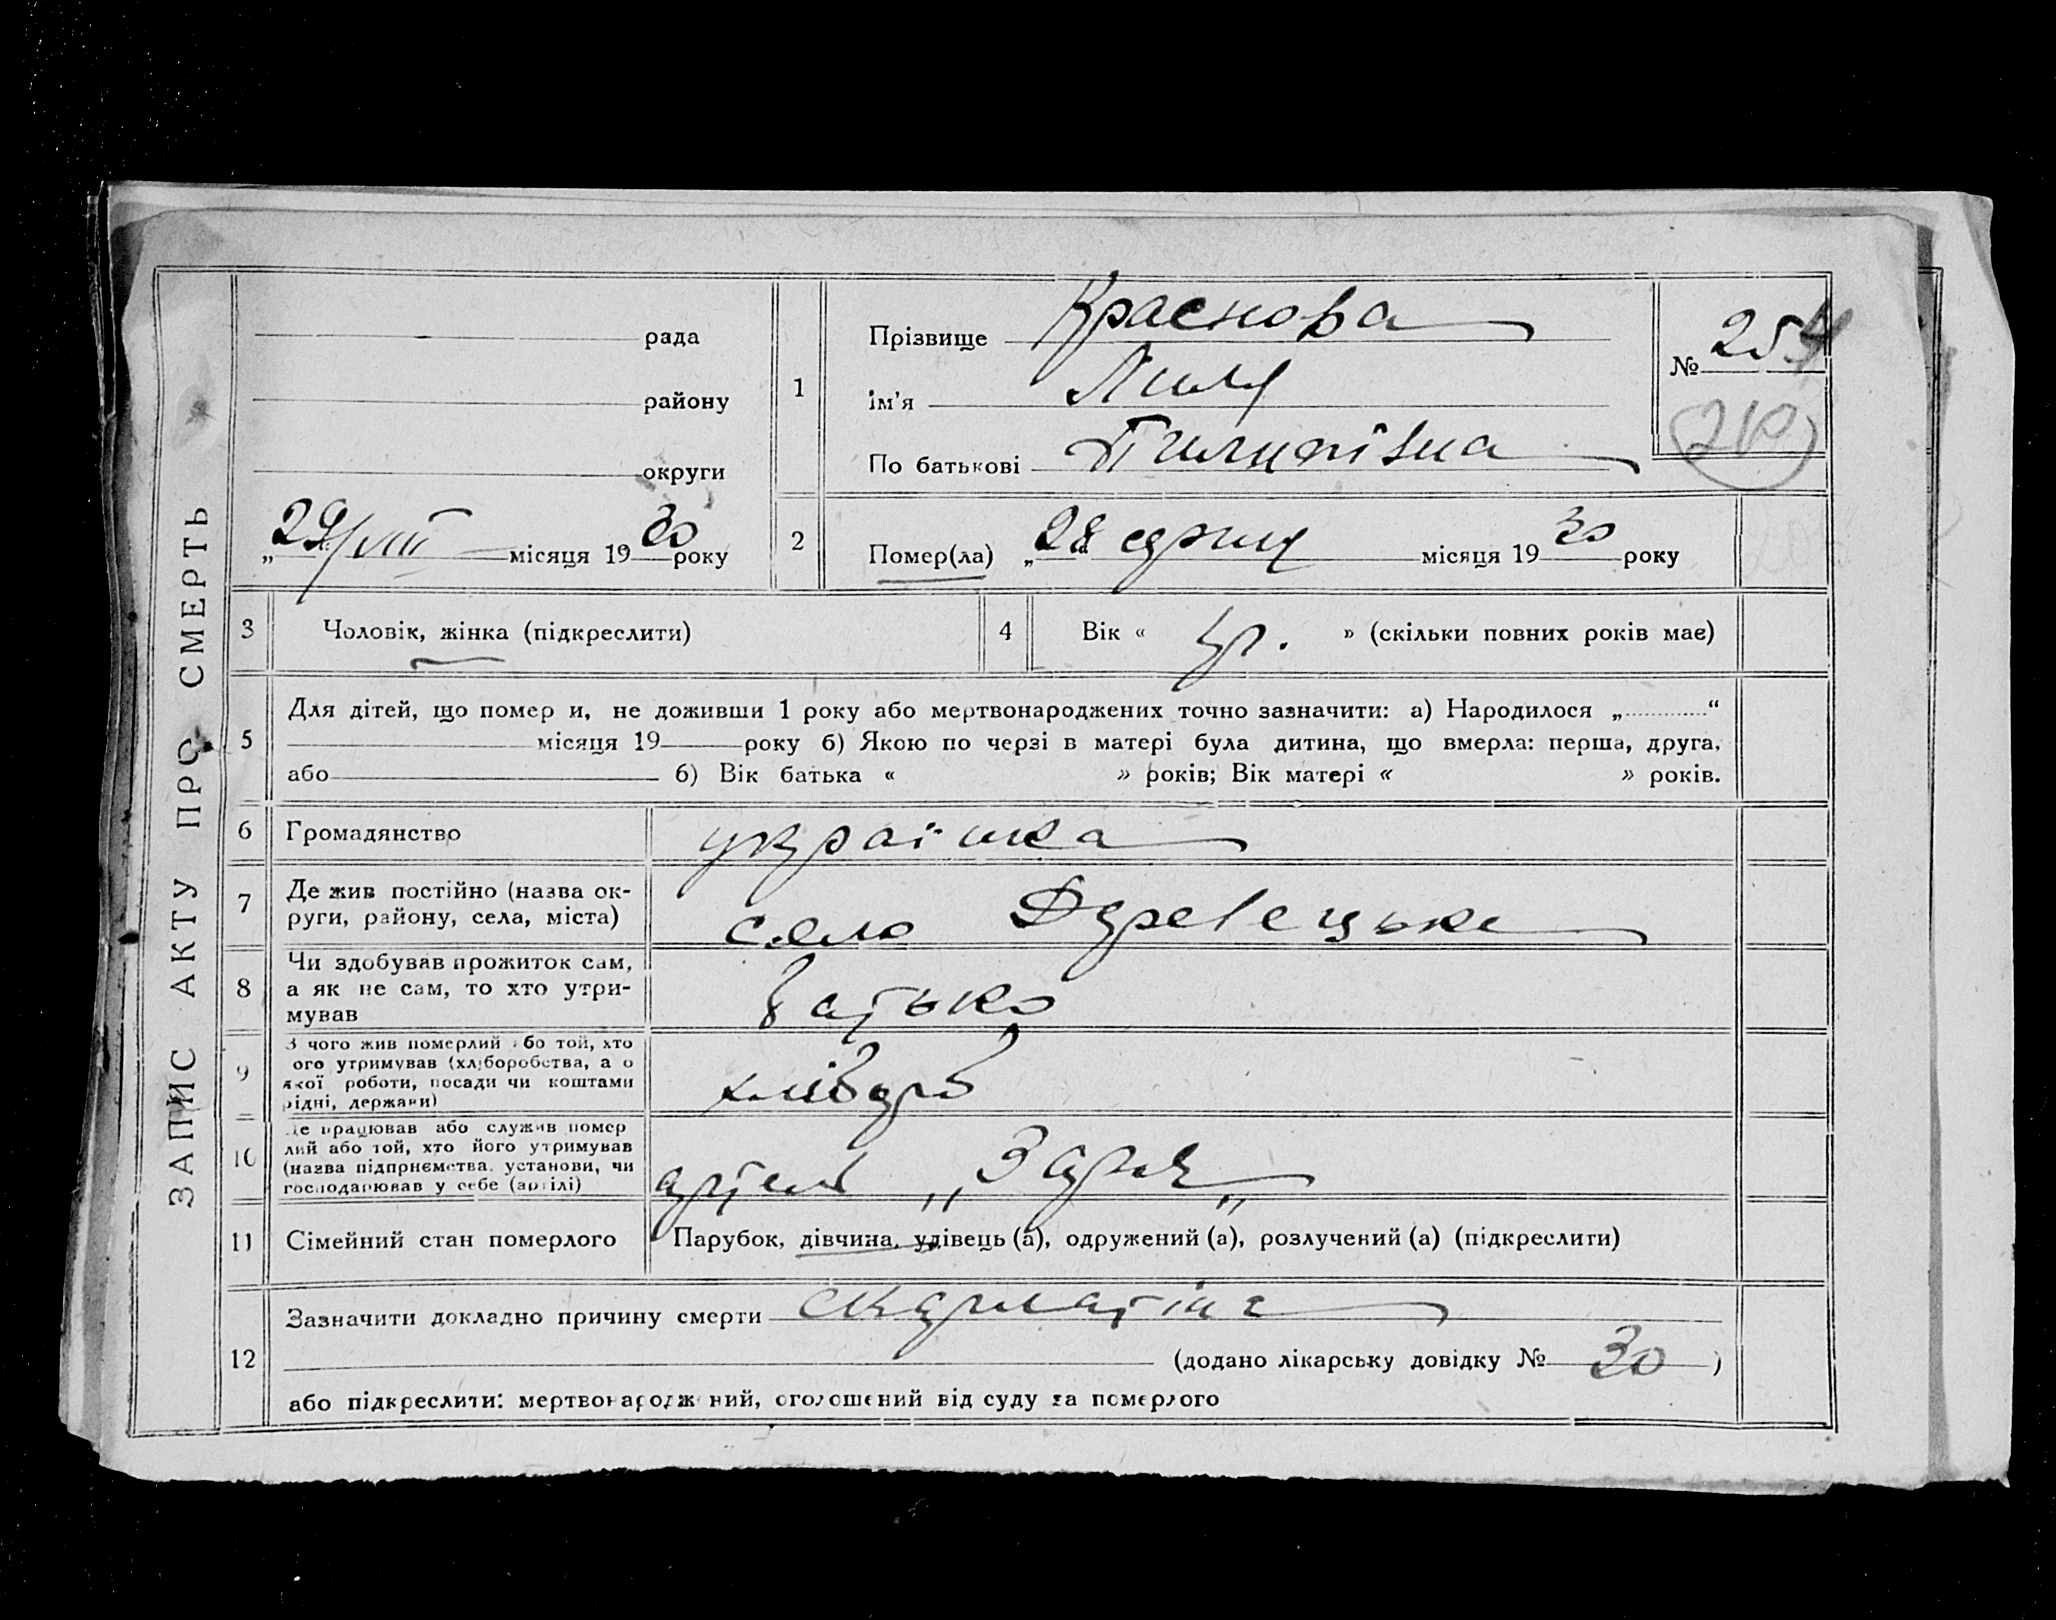 ЗАПИС АКТУ ПРО СМЕРТЬ
рада
району
округи
„29/VIII місяця 1930 року
1
Прізвище Краснова
ім'я Лиля
По батькові Пилипівна
№ 254
210
2
Помер(ла) „28 серпня місяця 1930 року
3 Чоловік, жінка (підкреслити)
4 Вік « р. » (скільки повних років має)
5 Для дітей, що помер и, не доживши 1 року або мертвонароджених точно зазначити: а) Народилося „ “
місяця 19 року б) Якою по черзі в матері була дитина, що вмерла: перша, друга,
або б) Вік батька « » років; Вік матері « » років.
6 Громадянство українка
7 Де жив постійно (назва ок-
руги, району, села, міста)
село
8 Чи здобував прожиток сам,
а як не сам, то хто утри-
мував
батько
9 З чого жив померлий або той, хто
ого утримував (хліборобства, а о
якої роботи, посади чи коштами
рідні, держави)
хлібороб
10 Де працював або служив помер
лий або той, хто його утримував
(назва підприємства, установи, чи
господарював у себе (артілі)
артель „Заря„
11 Сімейний стан померлого Парубок, дівчина, удівець (а), одружений (а), розлучений (а) (підкреслити)
12 Зазначити докладно причину смерти скарлатіна
(додано лікарську довідку № 30 )
або підкреслити: мертвонародж ний, оголошений від суду за померлого